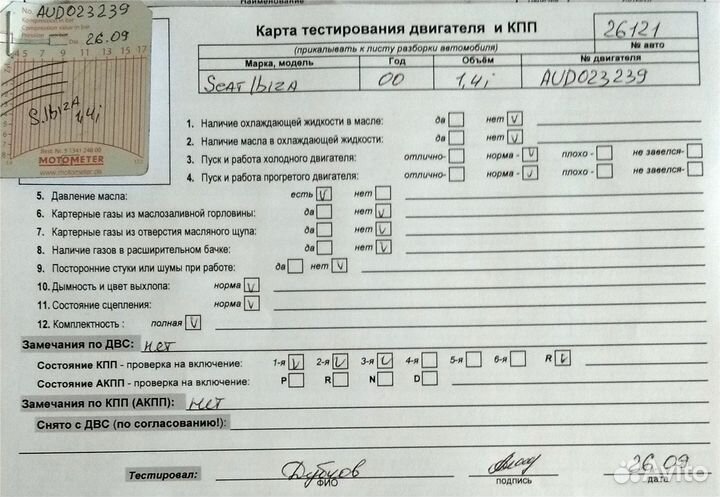 No. AUD023239
Kompression in bar
Compression value in bar
26.09
4 5 7 9 11 13 15 17
S.Ibiza
1,4i
Best. Nr. 5 1341 246 00
MOTOMETER
www.motometer.de
Карта тестирования двигателя и КПП
(прикалывать к листу разборки автомобиля)
26121
№ авто
Марка, модель Год Объём № двигателя
Seat Ibiza 00 1,4i AUD023239
1. Наличие охлаждающей жидкости в масле: да нет V
2. Наличие масла в охлаждающей жидкости: да нет V
3. Пуск и работа холодного двигателя: отлично- норма - V плохо - не завелся-
4. Пуск и работа прогретого двигателя: отлично- норма - V плохо - не завелся-
5. Давление масла: есть V нет
6. Картерные газы из маслозаливной горловины: да нет V
7. Картерные газы из отверстия масляного щупа: да нет V
8. Наличие газов в расширительном бачке: да нет V
9. Посторонние стуки или шумы при работе: да нет V
10. Дымность и цвет выхлопа: норма V
11. Состояние сцепления: норма V
12. Комплектность : полная V
Замечания по ДВС: нет
Состояние КПП - проверка на включение: 1-я V 2-я V 3-я V 4-я 5-я 6-я R V
Состояние АКПП - проверка на включение: P R N D
Замечания по КПП (АКПП): нет
Снято с ДВС (по согласованию!):
Тестировал: 26.09
ФИО подпись дата
Avito